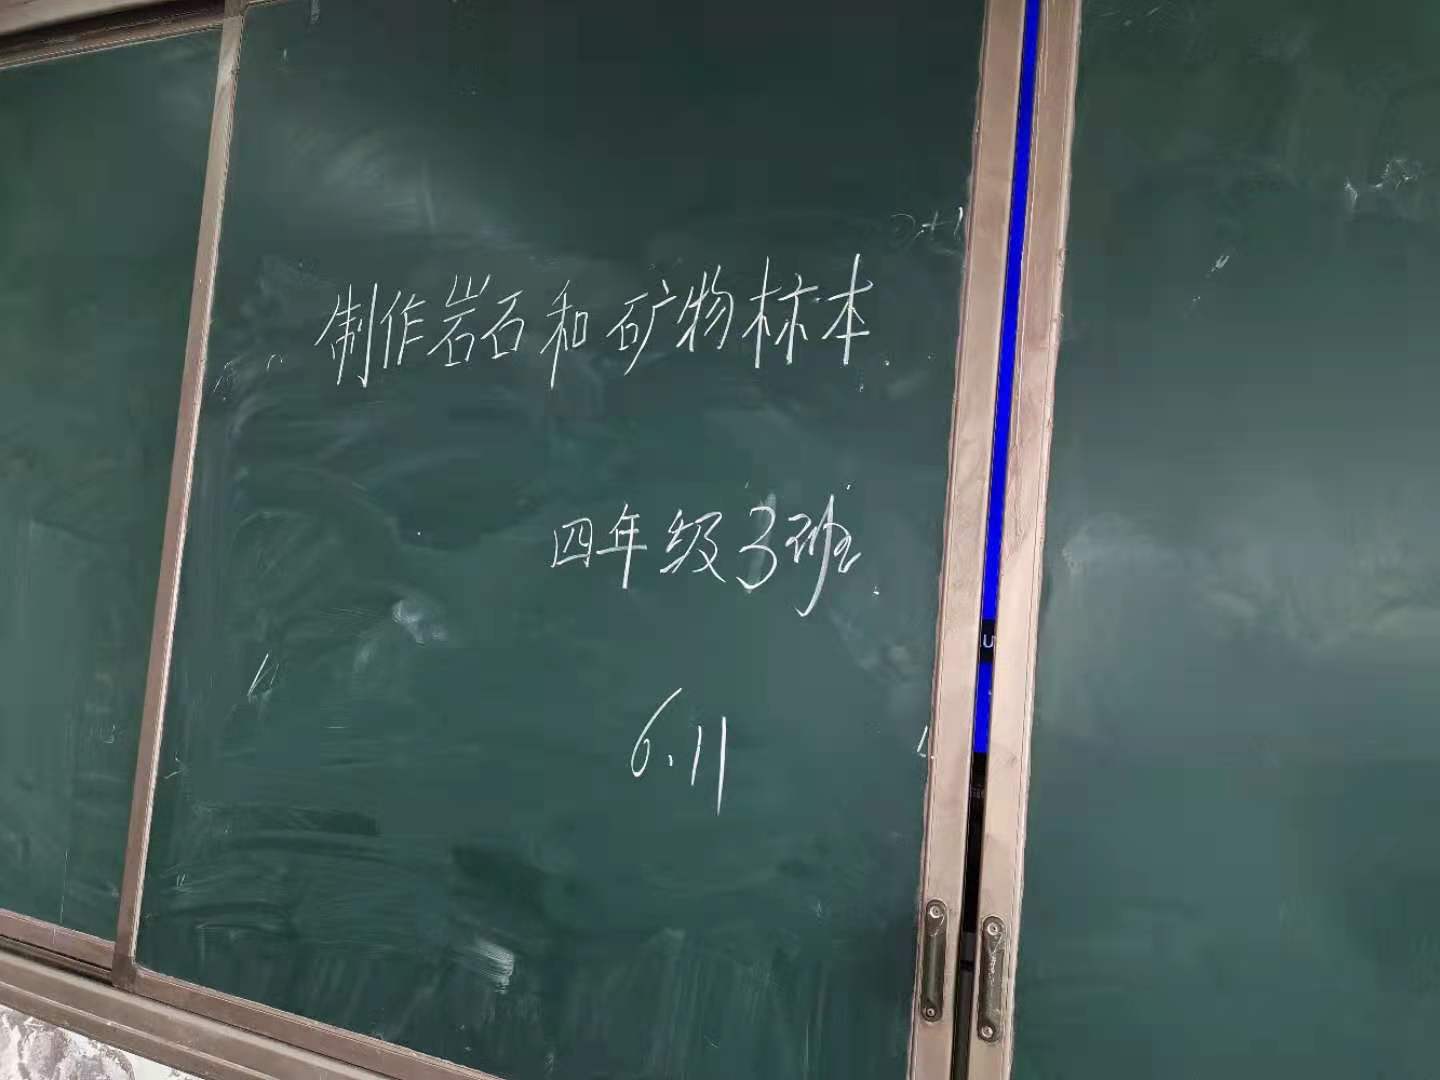 制作岩石和矿物标本
四年级3班
6.11